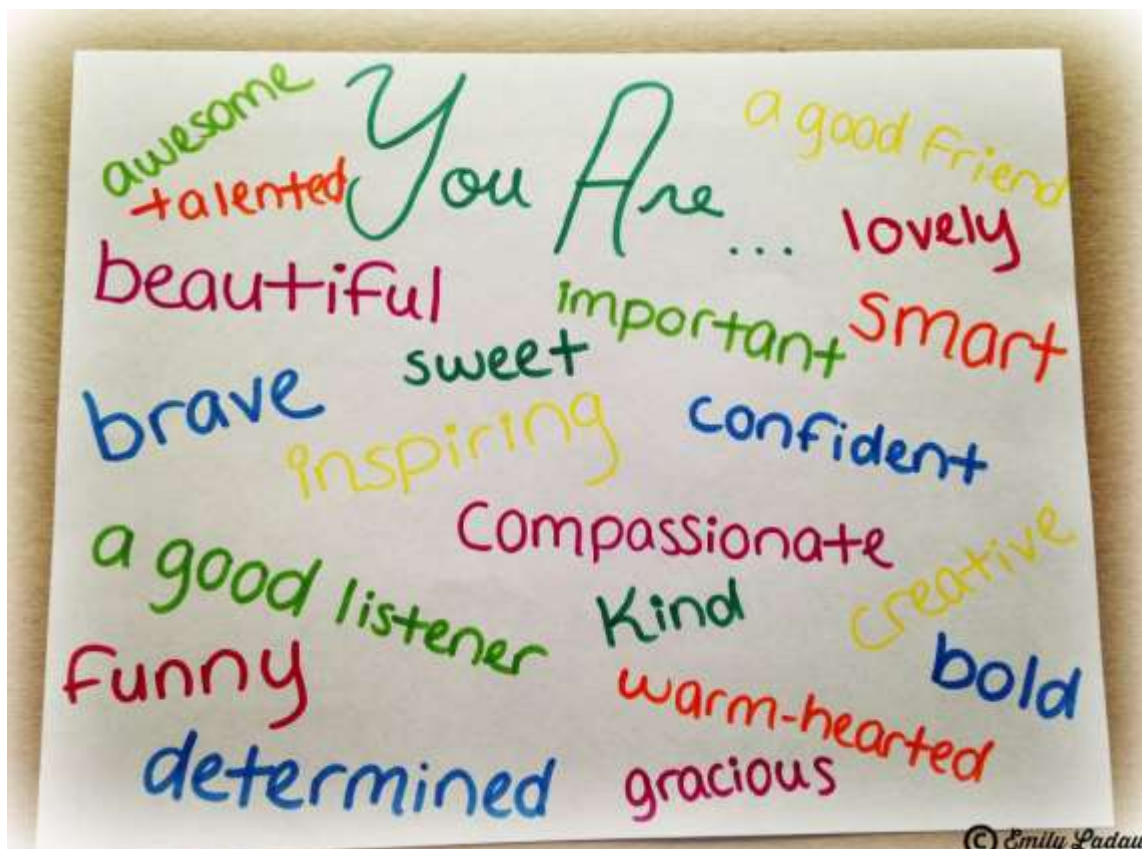 You Are...
awesome
a good friend
talented
lovely
beautiful
important
smart
sweet
brave
inspiring
confident
compassionate
creative
a good listener
Kind
funny
bold
warm-hearted
determined
gracious
© Emily Ladau